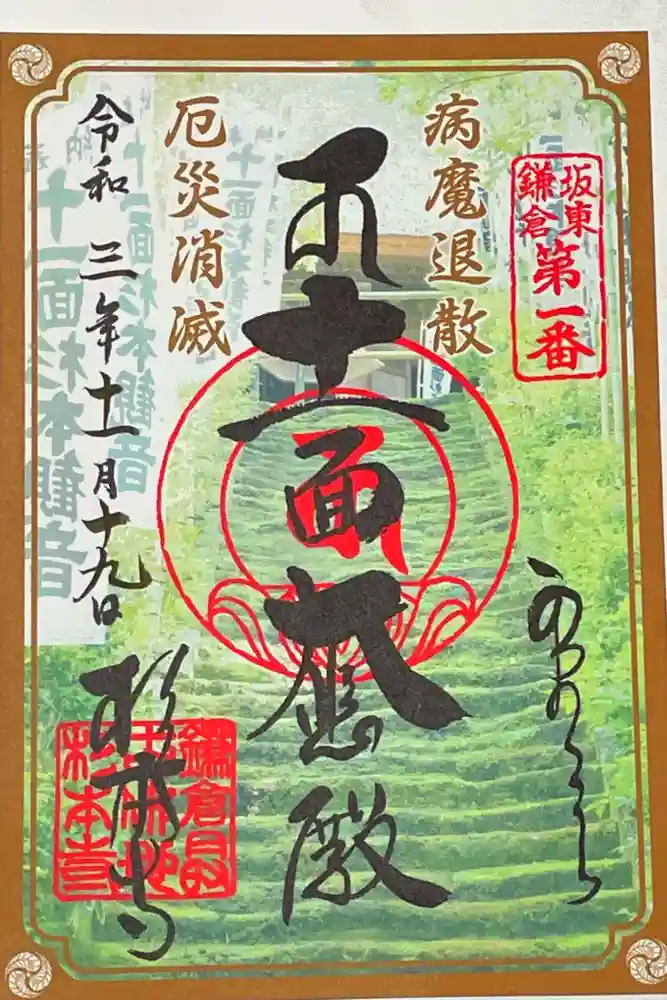 坂東
鎌倉
第一番
病魔退散
十一面大悲殿
厄災消滅
令和三年十一月十九日
杉本寺
十一面杉本観音
十一面杉本観音
十一面杉本観音